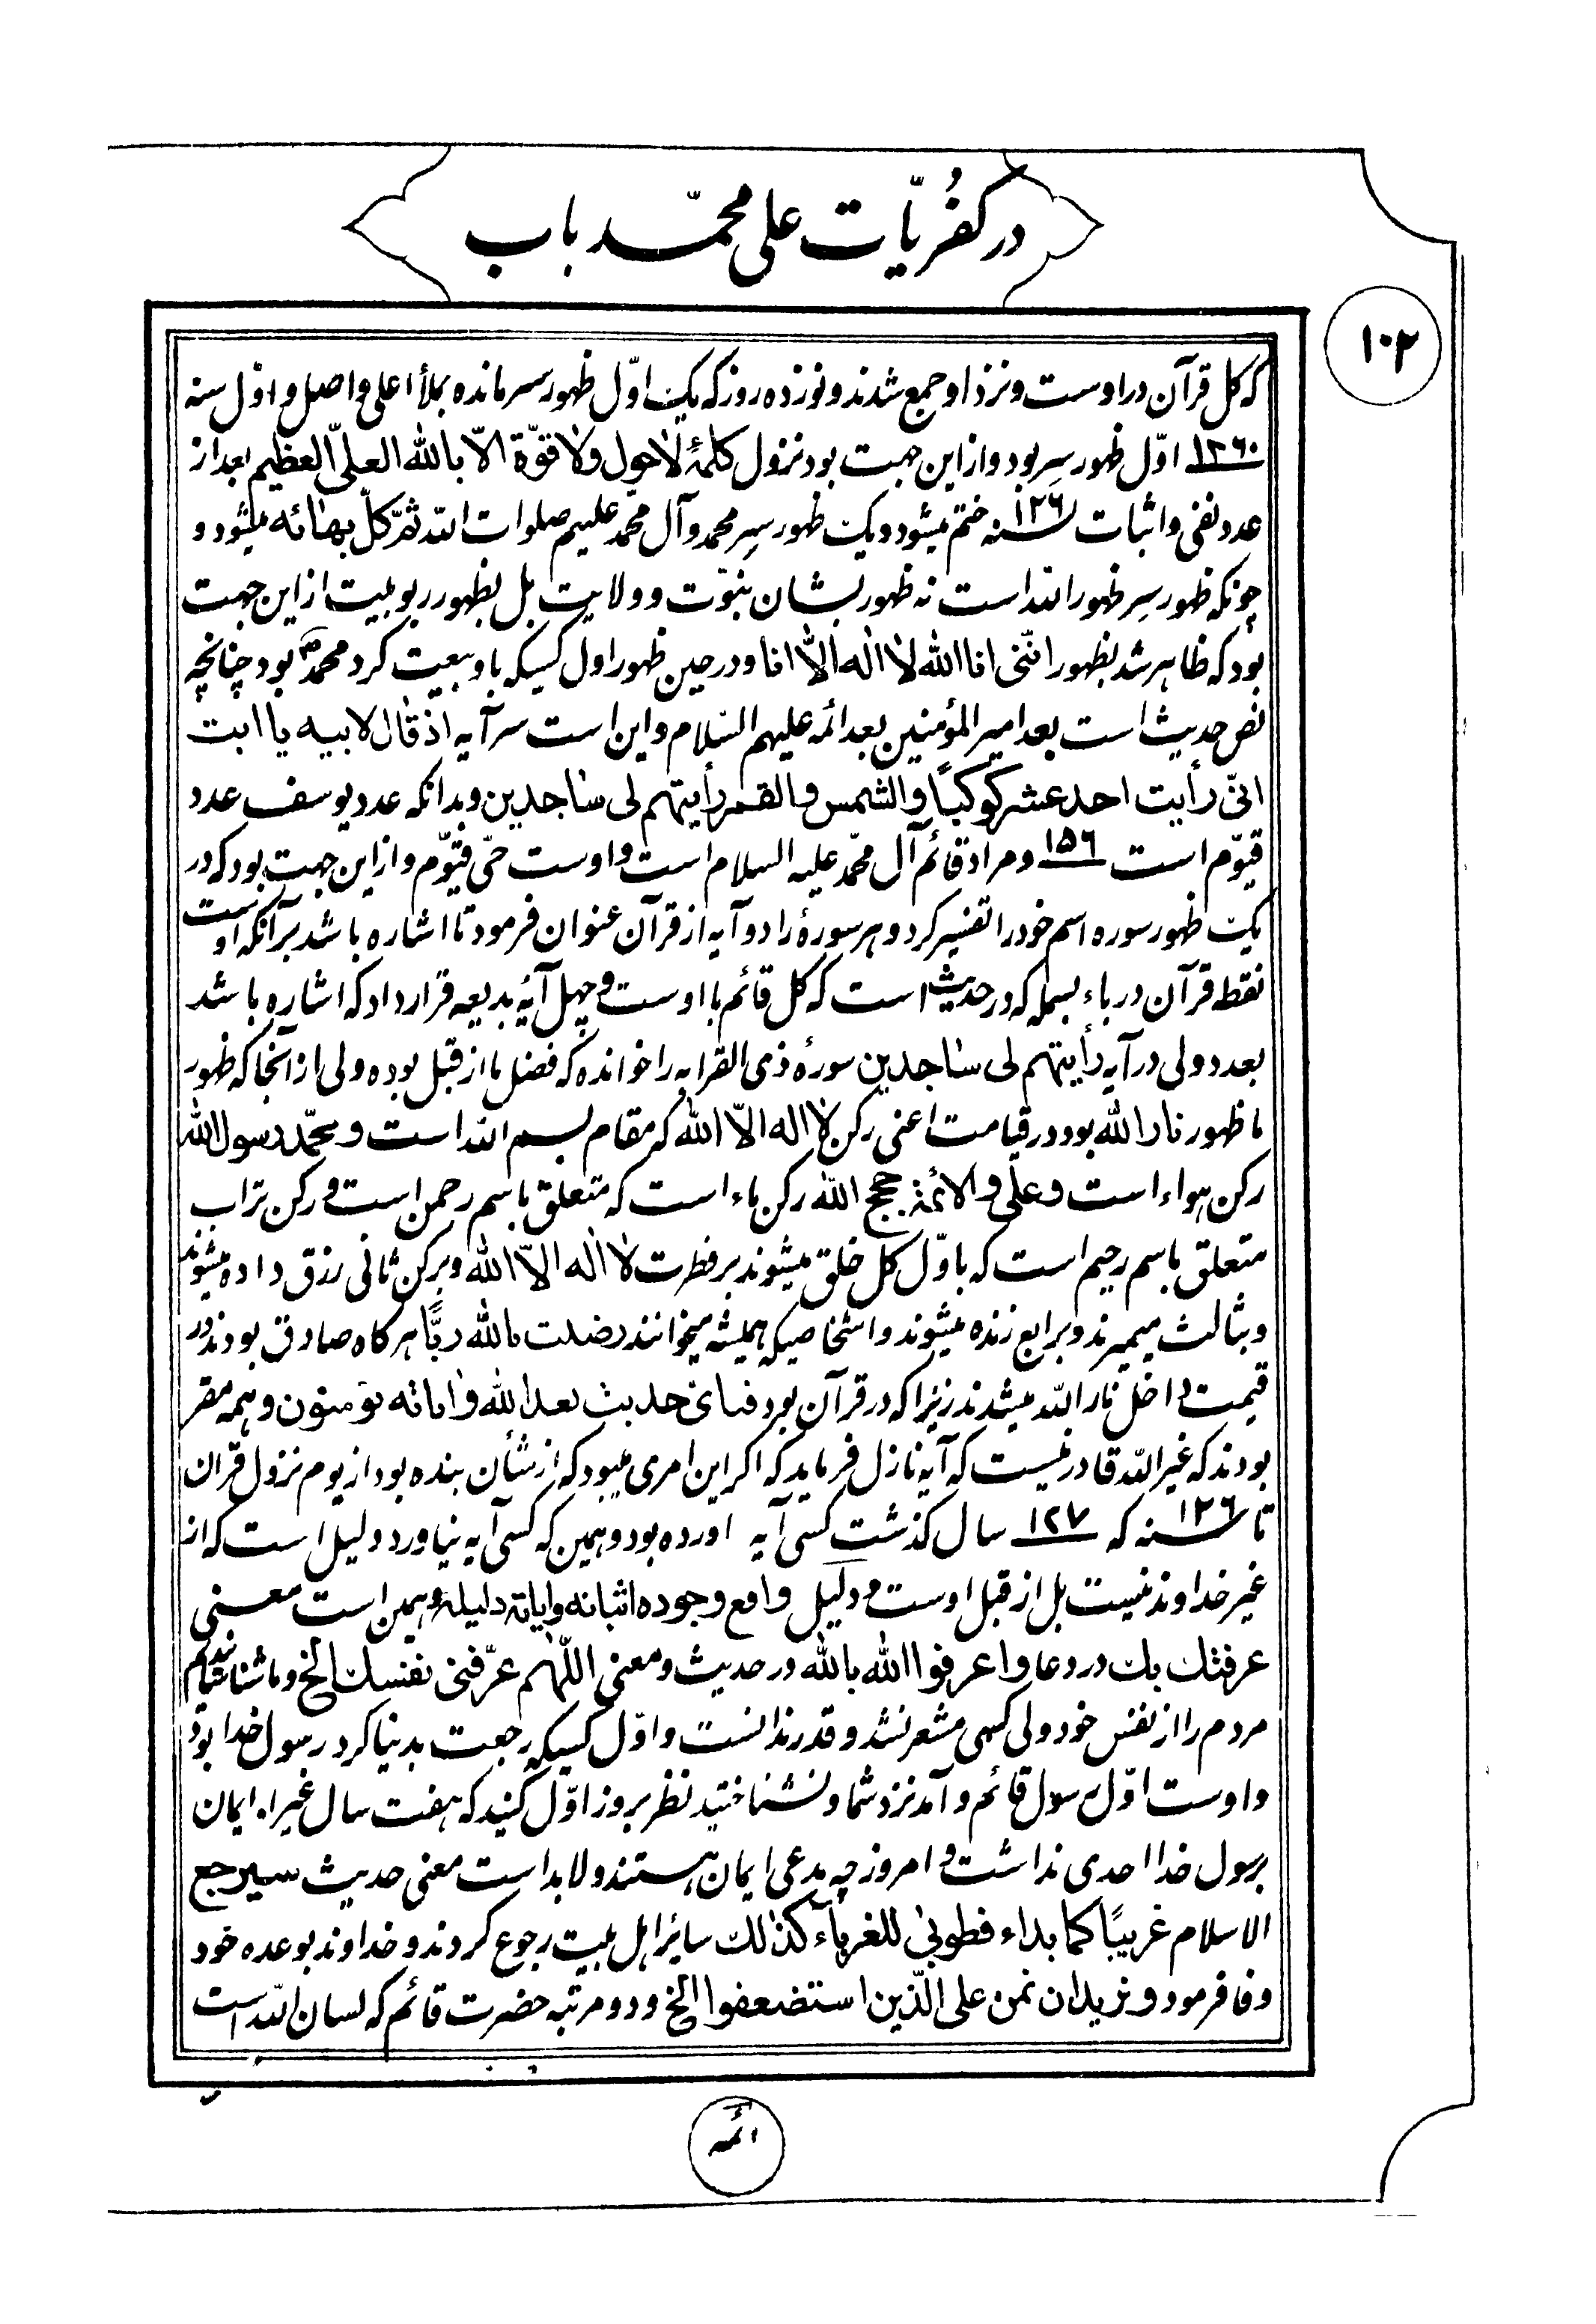 در کفریّات علی محمّد باب
۱۰۲
که کل قرآن در اوست و نزد او جمع شدند و نوزده روز که یک اوّل ظهور سر مانده بملأ اعلی واصل و اول سنه
۱۲۶۰ اوّل ظهور سر بود و از این جهت بود نزول کلمۀ لا حول ولا قوّة الّا بالله العلیّ العظیم بعد از
عدد نفی و اثبات سنه ۱۲۶ ختم میشود و یک ظهور سر محمد و آل محمد علیهم صلوات الله ثمّ کلّ بهائه میشود و
چونکه ظهور سر ظهور الله است نه ظهور بشان نبوّت و ولایت بل بظهور ربوبیت از این جهت
بود که ظاهر شد بظهور انّنی انا الله لا اله الّا انا و در حین ظهور اول کسیکه با و بیعت کرد محمدص بود چنانچه
نص حدیث است بعد امیرالمؤمنین بعد ائمه علیهم السّلام و این است سر آیه اذ قال لابیه یا ابت
انیّ رأیت احد عشر کوکبًا والشمس والقمر رأیتهم لی ساجدین و بدانکه عدد یوسف عدد
قیوّم است ۱۵۶ و مراد قائم آل محمّد علیه السلام است و اوست حیّ قیّوم و از این جهت بود که در
یک ظهور سوره اسم خود را تفسیر کرد و هر سورۀ را دو آیه از قرآن عنوان فرمود تا اشاره باشد بر آنکه اوست
نقطه قرآن در باء بسمله که در حدیث است که کل قائم با اوست و چهل آیۀ بدیعه قرار داد که اشاره باشد
بعدد ولی در آیه رأیتهم لی ساجدین سورۀ ذی القرابه را خوانده که فضل ما از قبل بوده ولی از آنجا که ظهور
ما ظهور نار الله بود در قیامت اعنی رکن لا اله الّا الله که مقام بسم الله است و محمّد رسول الله
رکن هواء است و علی و الائمة حجج الله رکن ماء است که متعلق باسم رحمن است و رکن تراب
متعلق باسم رحیم است که باوّل کل خلق میشوند بر فطرت لا اله الّا الله و برکن ثانی رزق داده میشوند
و بثالث میمیرند و برابع زنده میشوند و اشخاصیکه همیشه میخوانند رضیت بالله ربًّا هر کاه صادق بودند در
قیمت داخل نار الله میشدند زیرا که در قرآن بود فبای حدیث بعد الله و ایاته یؤمنون و همه مقر
بودند که غیر الله قادر نیست که آیه نازل فرماید که اکر این امری میبود که از شأن بنده بود از یوم نزول قران
تا سنه ۱۲۶ که ۱۲۷ سال کذشت کسی آیه اورده بود و همین که کسی آیه نیاورد دلیل است که از
غیر خداوند نیست بل از قبل اوست و دلیل واقع وجوده اثباته وایاته دلیله و همین است معنی
عرفتک بک در دعا و اعرفوا الله بالله در حدیث و معنی اللّهم عرّفنی نفسک الخ و ما شناسانیدیم
مردم را از نفس خود ولی کسی مشعر نشد و قدر ندانست و اوّل کسیکه رجعت بدنیا کرد رسول خدا بود
و اوست اوّل رسول قائم و آمد نزد شما و نشناختید نظر بروز اوّل کنید که هفت سال غیر ایمان
برسول خدا احدی نداشت و امروز چه مدعی ایمان هستند و لابد است معنی حدیث سیرجع
الاسلام غریبًا کما بداء فطوبیٰ للغرباء کذلک سائر اهل بیت رجوع کردند و خداوند بوعده خود
وفا فرمود و نرید ان نمن علی الّذین استضعفوا الخ و دو مرتبه حضرت قائم که لسان الله است
ائمه